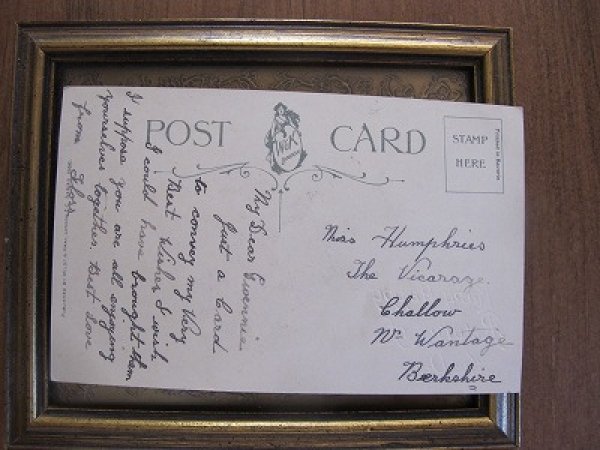 POST CARD
STAMP
HERE
My Dear Gwennie.
Just a Card
to convey my Very
Best Wishes I wish
I could have brought them
I suppose you are all enjoying
yourselves together. Best Love
from
Miss Humphries
The Vicarage.
Challow
Nr Wantage
Berkshire